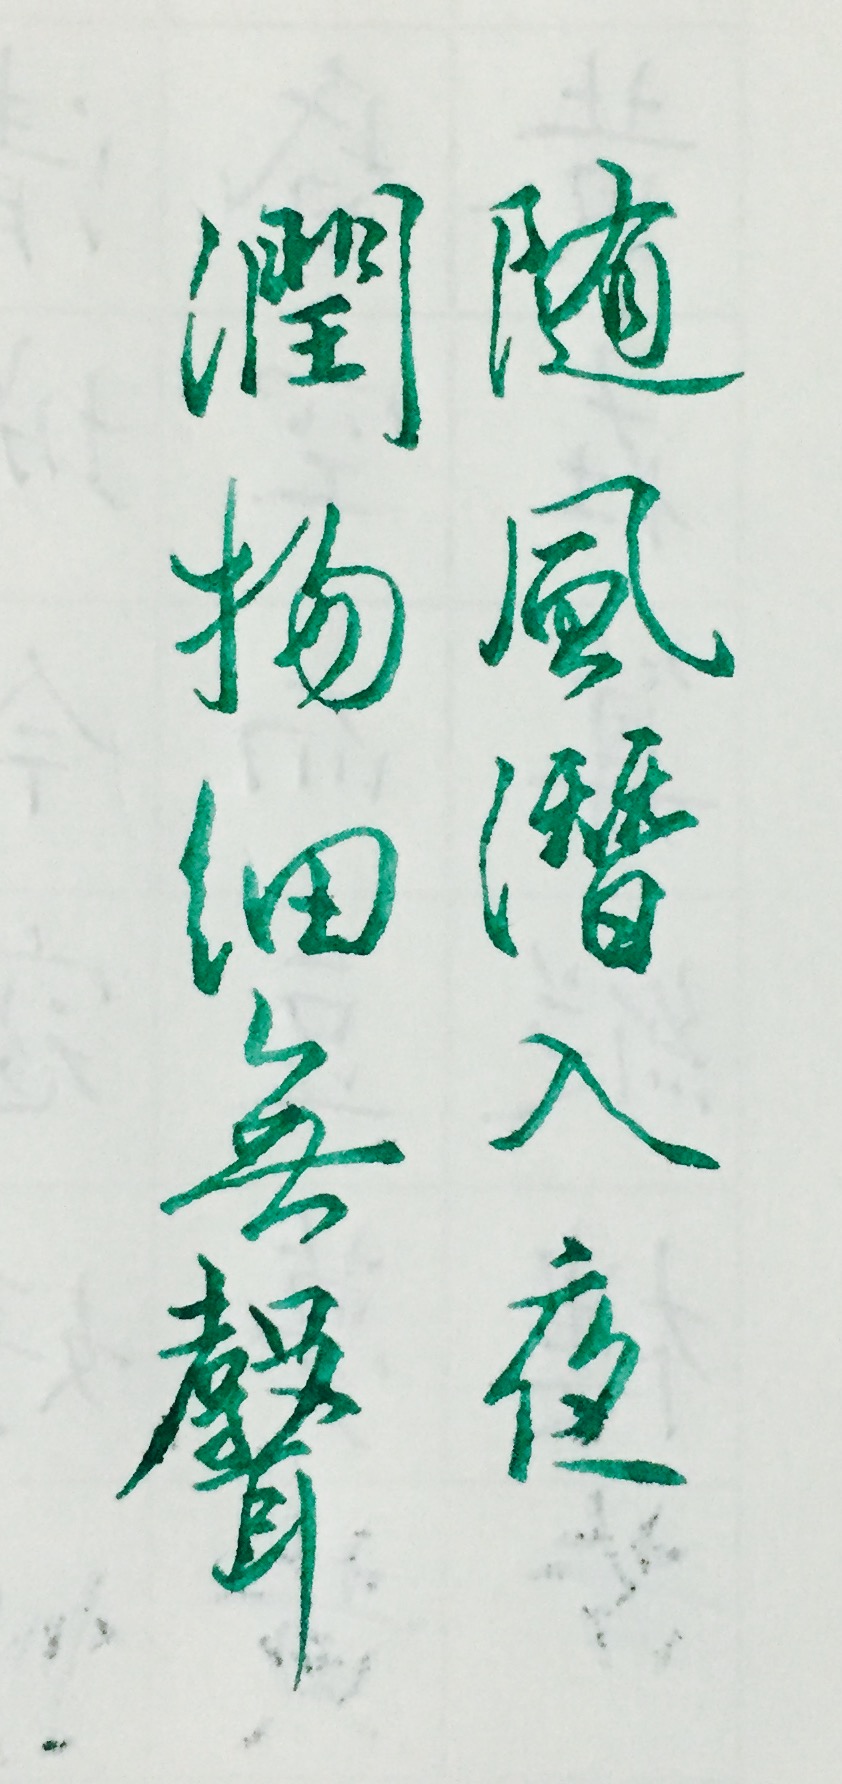 随風潛入夜
潤物細無聲